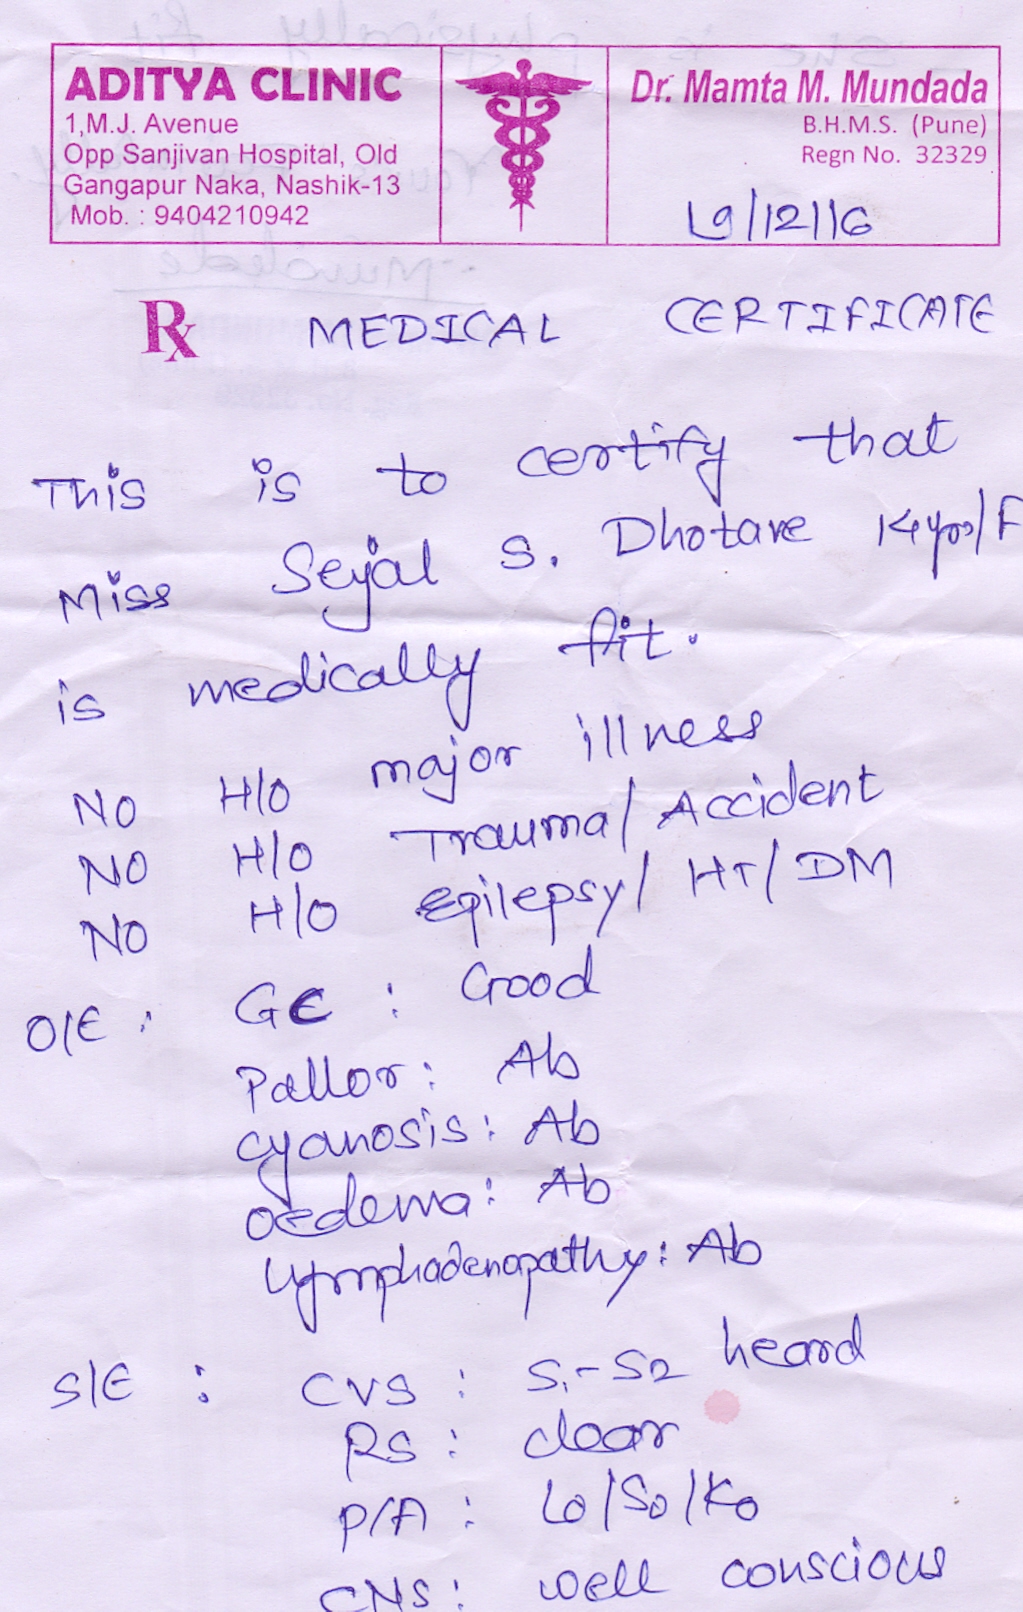 ADITYA CLINIC
1,M.J. Avenue
Opp Sanjivan Hospital, Old
Gangapur Naka, Nashik-13
Mob. : 9404210942
Dr. Mamta M. Mundada
B.H.M.S. (Pune)
Regn No. 32329
19/12/16
Rx MEDICAL CERTIFICATE
This is to certify that
Miss Sejal S. Dhotare 14yrs/F
is medically fit.
NO H/O major illness
NO H/O Trauma/Accident
NO H/O Epilepsy/HT/DM
O/E : GC : Good
Pallor : Ab
cyanosis : Ab
oedema : Ab
Lymphadenopathy : Ab
S/E : CVS : S1-S2 heard
RS : clear
P/A : Lo/So/Ko
CNS : well conscious